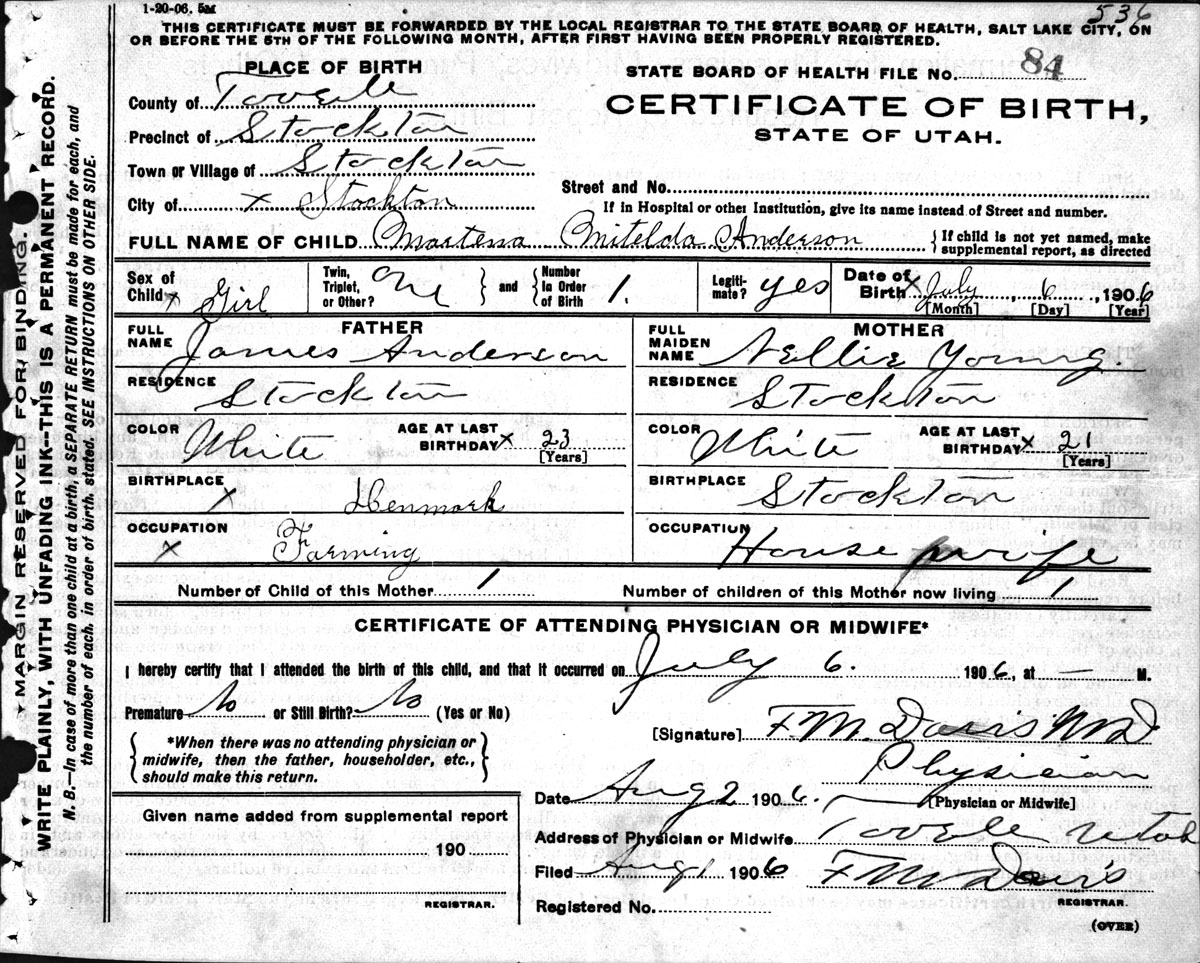 1-20-06. 5M
536
THIS CERTIFICATE MUST BE FORWARDED BY THE LOCAL REGISTRAR TO THE STATE BOARD OF HEALTH, SALT LAKE CITY, ON
OR BEFORE THE 5TH OF THE FOLLOWING MONTH, AFTER FIRST HAVING BEEN PROPERLY REGISTERED.
PLACE OF BIRTH
STATE BOARD OF HEALTH FILE No. 84
County of Tooele
CERTIFICATE OF BIRTH,
STATE OF UTAH.
Precinct of Stockton
Town or Village of Stockton
City of x Stockton
Street and No.
If in Hospital or other Institution, give its name instead of Street and number.
FULL NAME OF CHILD Martena Mitelda Anderson { If child is not yet named, make supplemental report, as directed
Sex of Child x Girl
Twin, Triplet, or Other? One } and { Number In Order of Birth 1.
Legitimate? yes
Date of Birth x July, 6, 1906
[Month] [Day] [Year]
FATHER
FULL NAME James Anderson
RESIDENCE Stockton
COLOR White AGE AT LAST BIRTHDAY x 23
[Years]
BIRTHPLACE x Denmark
OCCUPATION x Farming
MOTHER
FULL MAIDEN NAME Nellie Young.
RESIDENCE Stockton
COLOR White AGE AT LAST BIRTHDAY x 21
[Years]
BIRTHPLACE Stockton
OCCUPATION House wife
Number of Child of this Mother 1 Number of children of this Mother now living 1
CERTIFICATE OF ATTENDING PHYSICIAN OR MIDWIFE*
I hereby certify that I attended the birth of this child, and that it occurred on July 6. 1906, at — M.
Premature No or Still Birth? No (Yes or No)
{ *When there was no attending physician or
midwife, then the father, householder, etc.,
should make this return. }
[Signature] F. M. Davis MD
Physician
[Physician or Midwife]
Date Aug 2 1906.
Address of Physician or Midwife Tooele Utah
Filed Aug 1 1906 F M Davis
REGISTRAR.
Registered No.
(OVER)
Given name added from supplemental report
190
REGISTRAR.
MARGIN RESERVED FOR BINDING.
WRITE PLAINLY, WITH UNFADING INK--THIS IS A PERMANENT RECORD.
N. B.—In case of more than one child at a birth, a SEPARATE RETURN must be made for each, and
the number of each, in order of birth, stated. SEE INSTRUCTIONS ON OTHER SIDE.